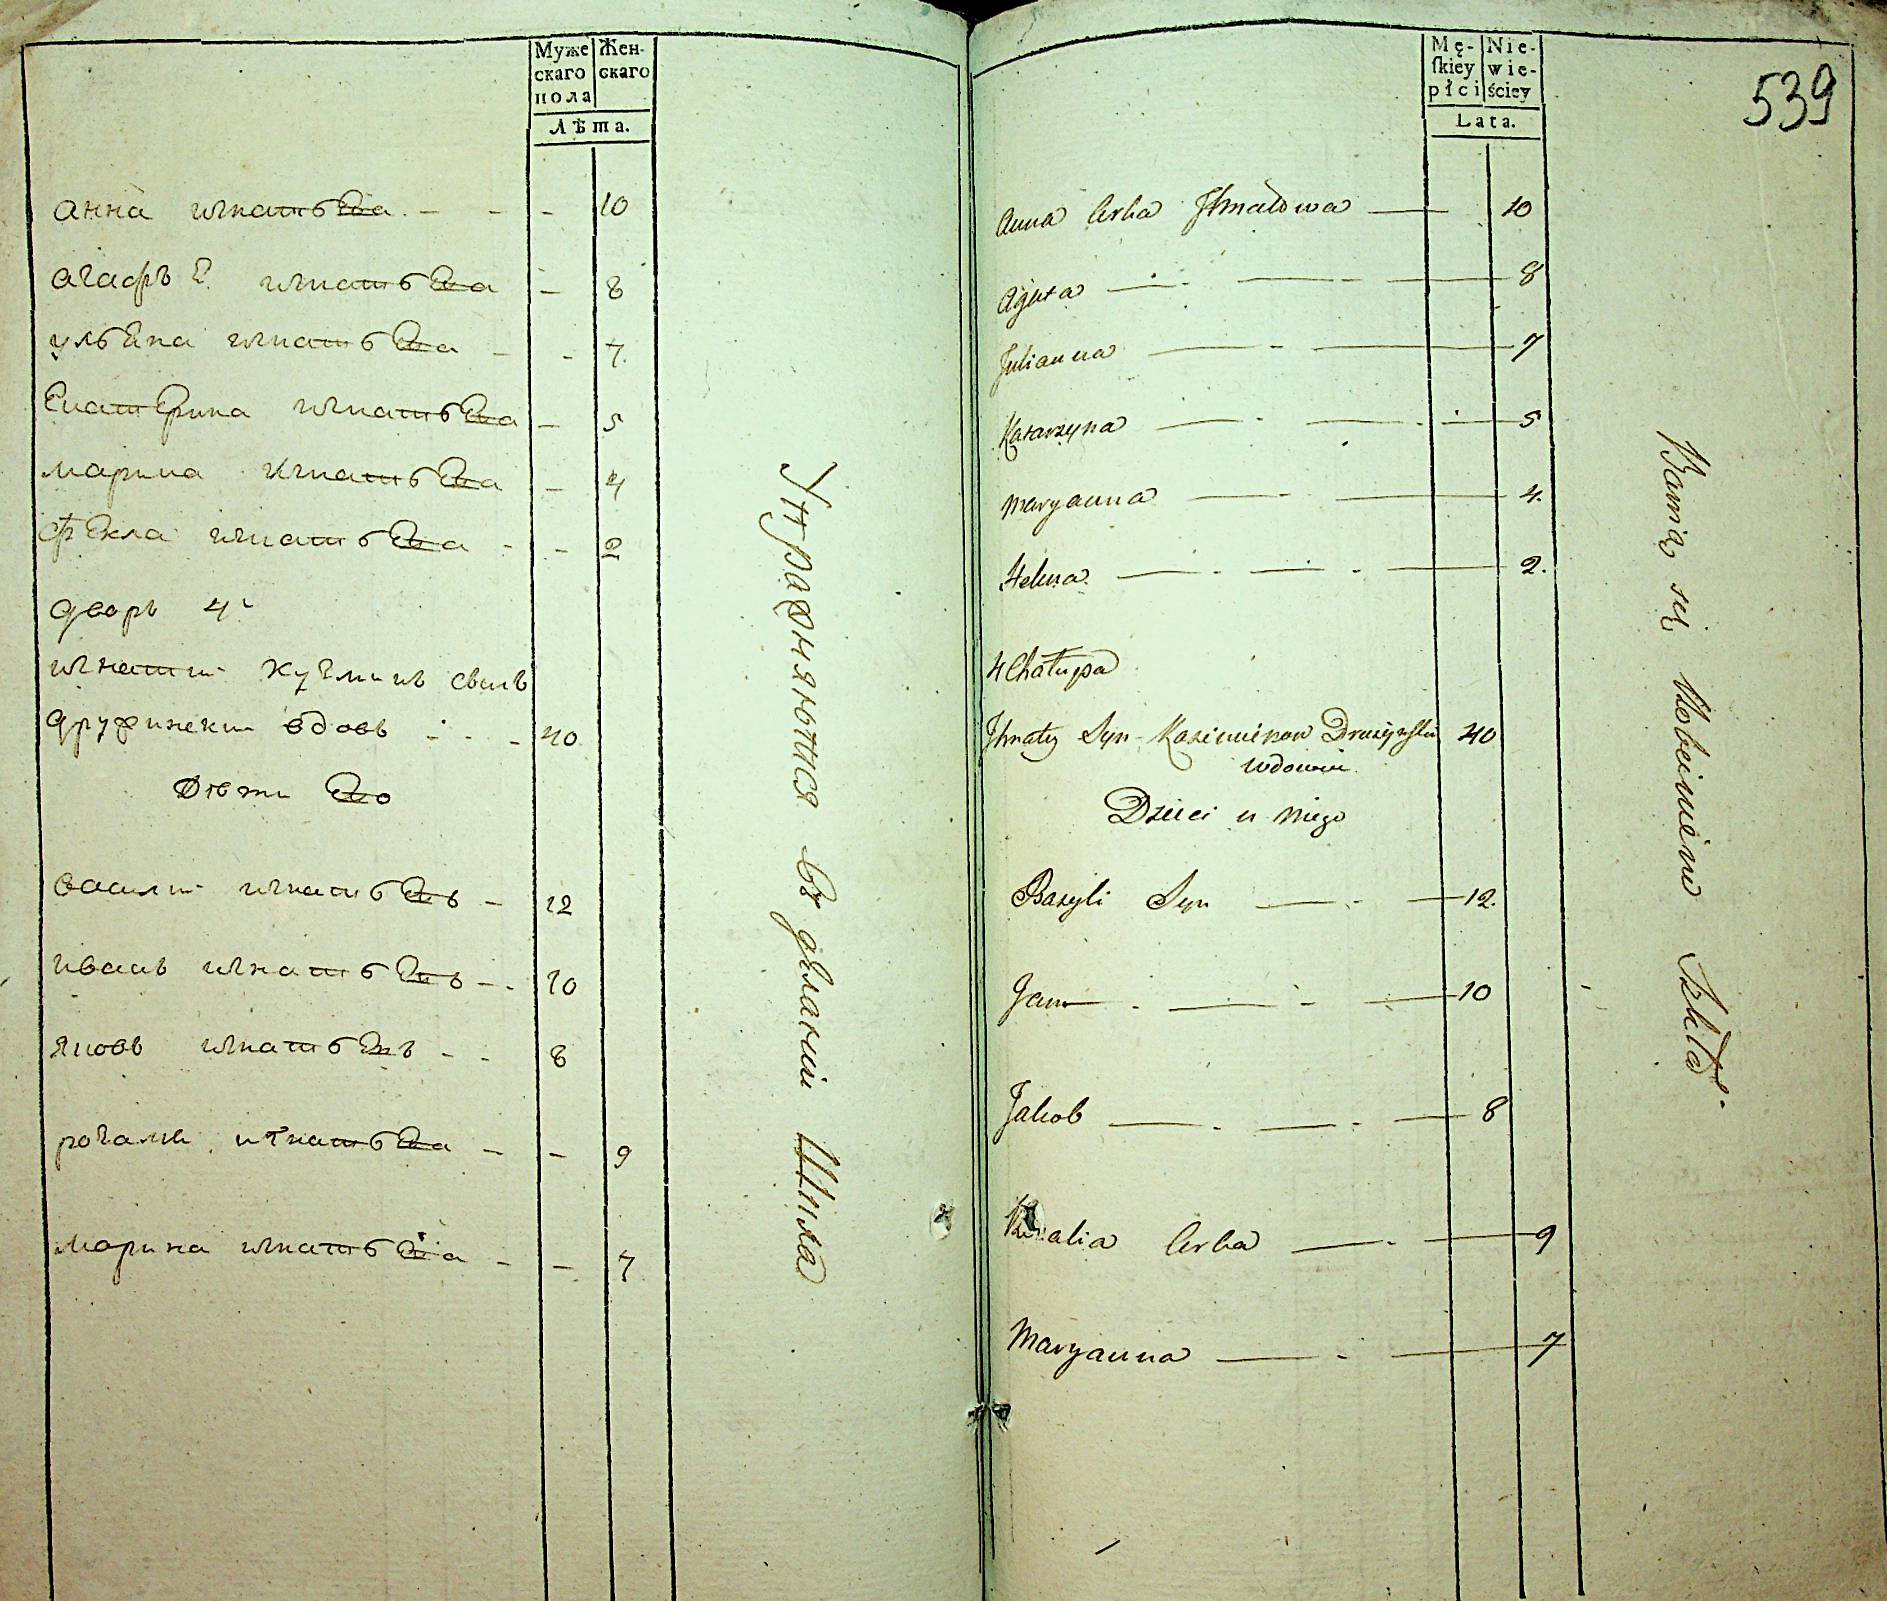 Муже
скаго
пола
Жен-
скаго
Лѣта.
анна игнатьева - - - 10
агафъ игнатьева - 8
ульяна игнатьева - - 7
Екатерина игнатьева - 5
марина игнатьева - 4
фекла игнатьева - - 2
дворъ 4
игнатии сынъ
вдовъ - - 40
дѣти Его
василии игнатьевъ - 12
иванъ игнатьевъ - - 10
яковъ игнатьевъ - - 8
игнатьева - - 9
марина игнатьева - - 7
Упражняются въ деланіи
Mę-
skiey
płci
Nie-
wie-
ściey
Lata.
539
Anna Corka Ihnatowa 10
Agata 8
Julianna 7
Katarzyna 5
Maryanna 4.
Helena 2.
4 Chałupa
Ihnaty Syn Kazimierow Drużyński 40
wdowiec
Dzieci u niego
Bazyli Syn 12.
Jan 10
Jakob 8
Corka 9
Maryanna 7
Bawią się Robieniem Szkła.